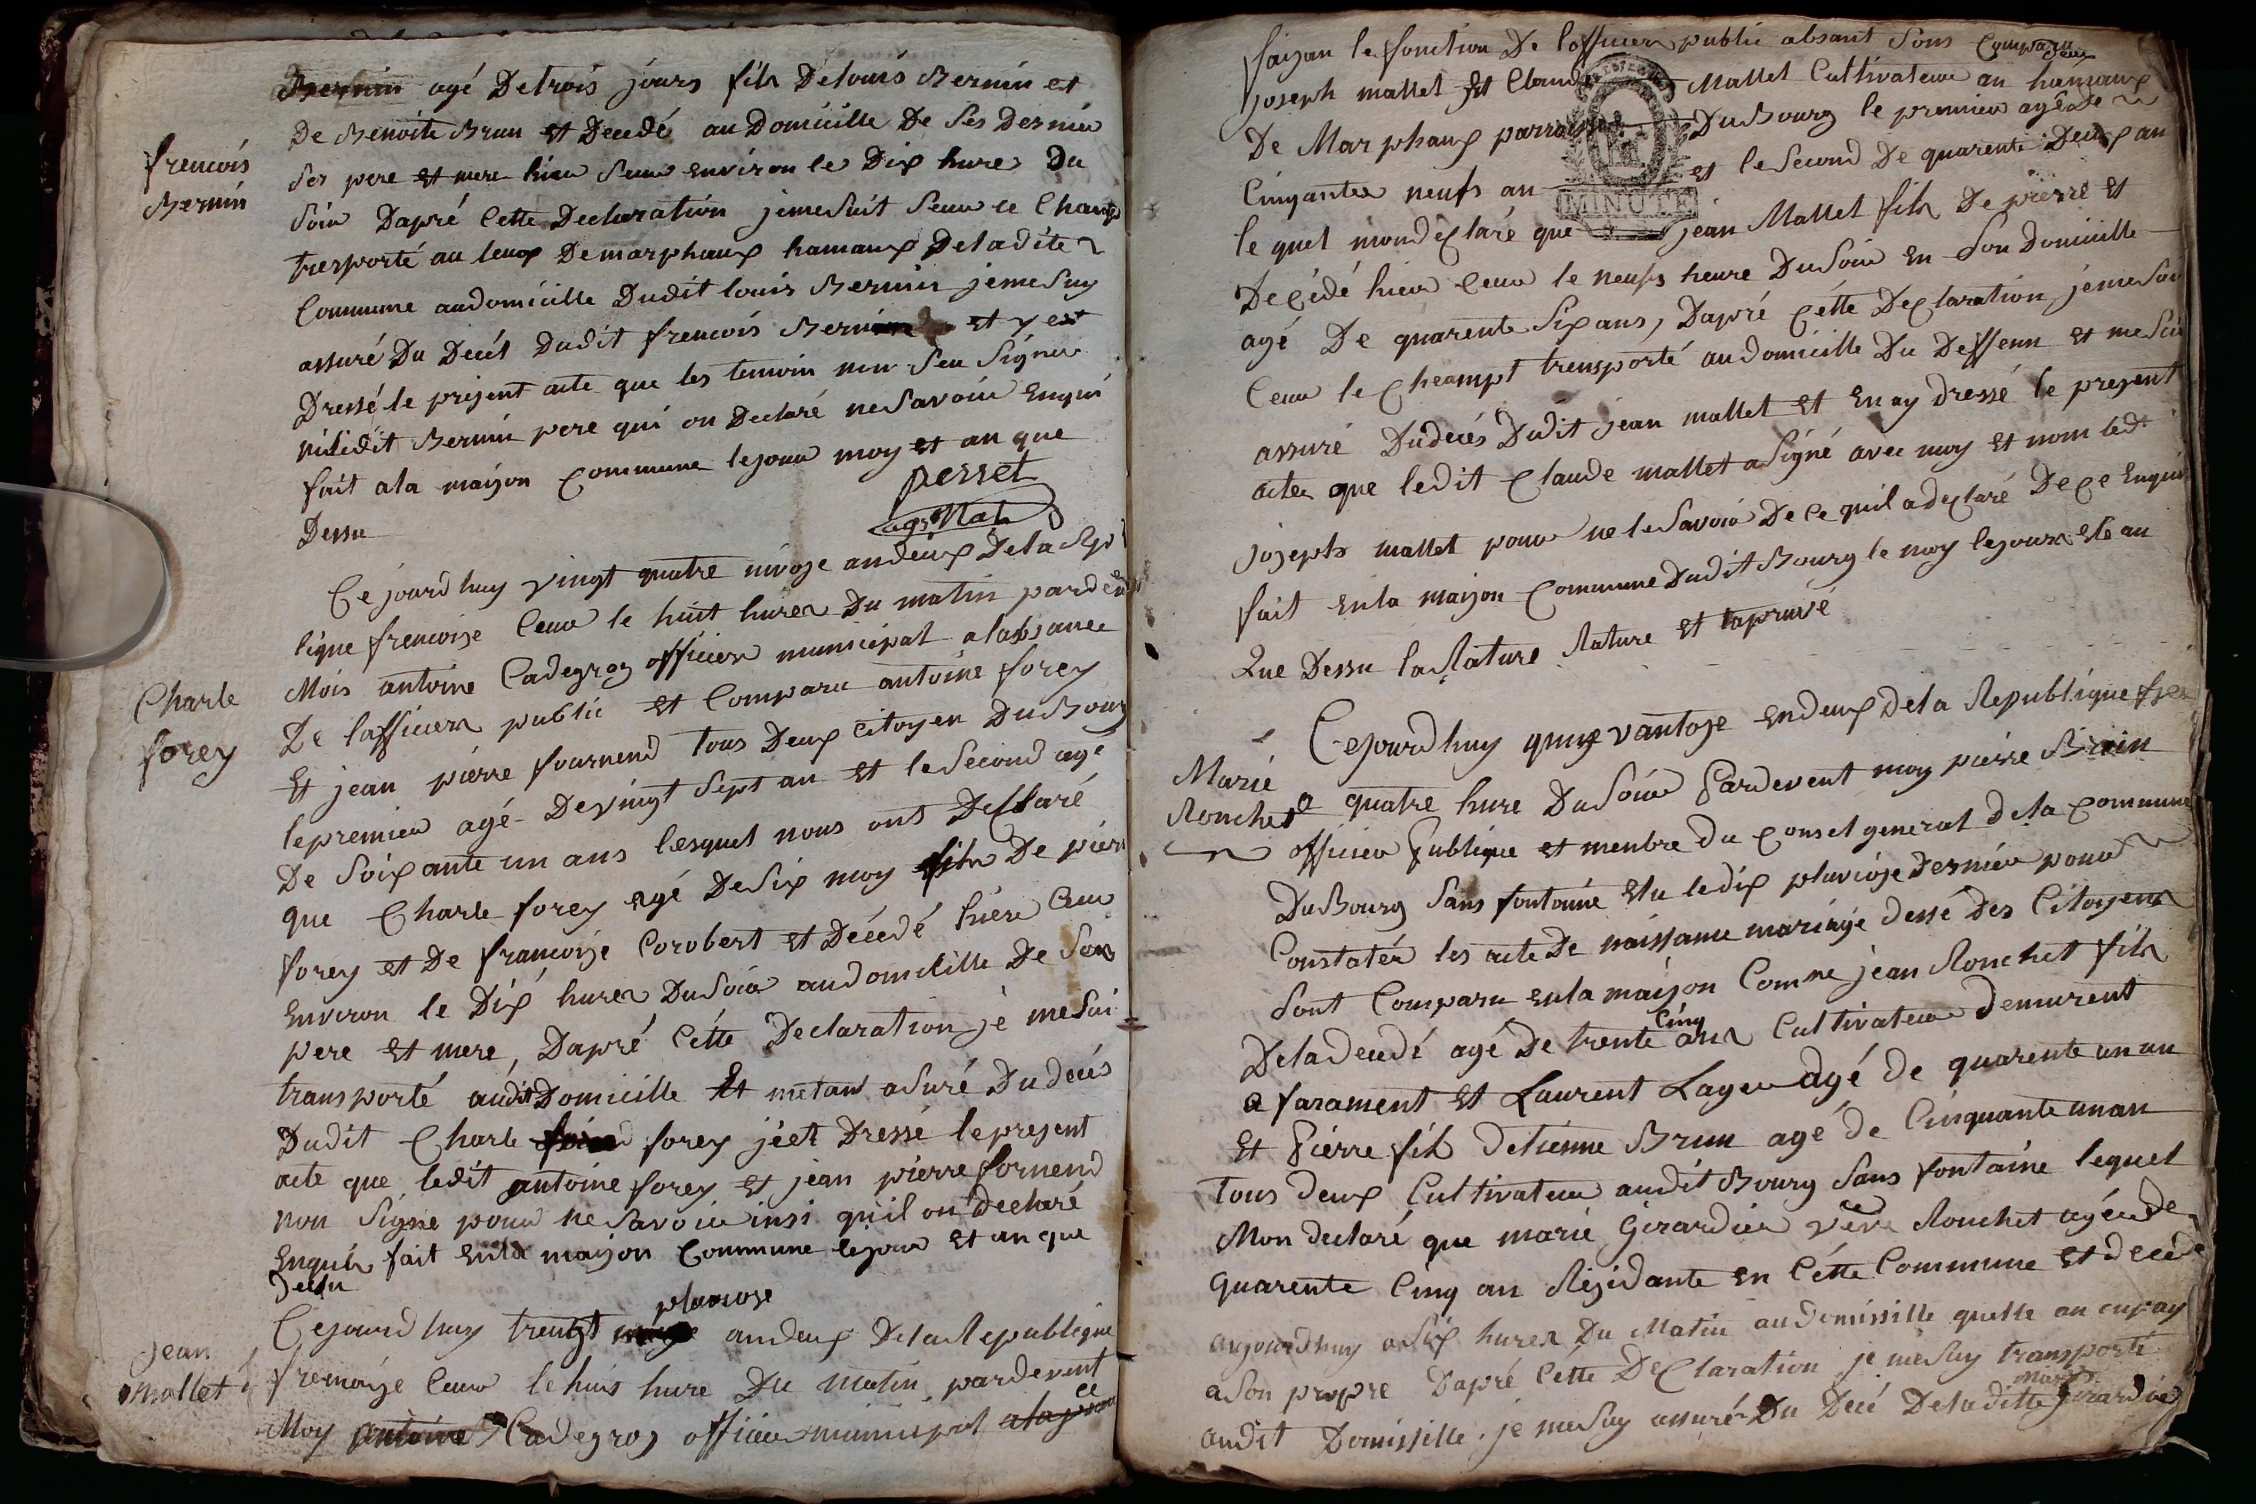 frencois
Bernin
Bernin agé De trois jours fils De louis Bernin et
De Benoite Brun et Decedé au Domicille De Ses Dernié
Ses pere et mere hier Seur environ le Dix hures Du
Soir Dapré Cette Declaration jemesuit Seur le Champ
tresporté au leux Demarphaux hamaux Deladite
Commune audomicille Dudit louis Bernin jemesuy
assuré Du Decés Dudit frencois Bernin et y est
Dressé le prisent acte que les temoin non Seu Signer
ni ledit Bernin pere qui on Declaré nesavoir Enquis
fait ala maison Commune lejour moy et an que
Dessu
perret
agt Nal
Charle
forey
Cejourdhuy vingt quatre nivose andeux Dela Repu
lique frencoise Ceur le huit hures Du matin pardevent
Mois antoine Cadegros officier municipal alabsance
De lofficier public et Comparu antoine forey
Et jean pierre fournend tous Deux Citoyen DuBourg
lepremier agé Devingt Sept an et leSecond agé
De Soixante un ans lesquel nous ont Declaré
que Charle forey agé Desix moy fils De pierre
forey et De francoise Corobert et Décedé hiere Ceur
Environ le Dix hures Dusoir audomicille De Ses
pere et mere, Dapré Cette Declaration jé mesui
transporté audit Domicille Et metant asuré Dudecés
Dudit Charle forey jéet Dressé lepresent
acte que ledit antoine forey et jean pierre fornend
non Signe pour nesavoir insi quil on declaré
Enquis fait enla maison Commune lejour et an que
Dessu
Jean
mallet
pluviose
Cejourdhuy trentzt andeux Dela Republique
fremoise Ceur lehuis hure Du matin pardevent
Moy antoine Cadegros officier municipal
faisan le fonction De lofficier public absant Sons Comparu
joseph mallet Et Claude Mallet Cultivateur au hamaux
De Marphaux parroisse DuBourg le premier agé de
Cinqantes neufs an et le Second De quarente Deux an
MINUTE
lequel mondéclaré que jean Mallet fils De pierre et
Decédé hier Ceur le neufs heure Dusoir en Son Domicille
agé De quarente Six ans, Dapré Cétte Declaration jemesui
Ceur le Cheampt trensporté audomicille Du Deffenn et mesui
assuré Dudecés Dudit jean mallet et Enay dressé le present
actes que ledit Claude mallet aSigné avec moy et nom ledt
josepts mallet pour ne leSavoir De ce quil adeclaré Dece Enquis
fait enla maison Commune Dudit Bourg le moy lejours Et an
Que Dessu la Rature Rature et taprouvé
Marie
Ronchet
Cejourdhuy quinze vantose endeux dela Republique fren
a quatre hure Dusoir Pardevent moy pierre Brin
officier Publique et menbre du Conset general dela Commune
DuBourg Sans fontoine Elu ledix pluviose Dernier pour
Constatér les acte De naissance mariage dessé Des Citoyens
Sont Comparu enla maison Comne jean Ronchet fils
Deladecedé agé De trente cinq ans Cultivateur demurent
a farament et Laurent Lager agé de quarente un an
et Pierre fils detienne Brun agé de Cinquante un an
tous deux Cultivateur audit Bourg Sans fontaine lequel
Mon declaré que marie Girardier veve Ronchet agée de
quarente Cinq an Residante en Cétte Commune et decede
aujourdhuy a Six hures Du Matin audomissille quelle
aSon propre Dapré Cette Declaration je mesuy transporté
audit Domissille. je mesuy assuré Du Decé Deladitte marie Girardier